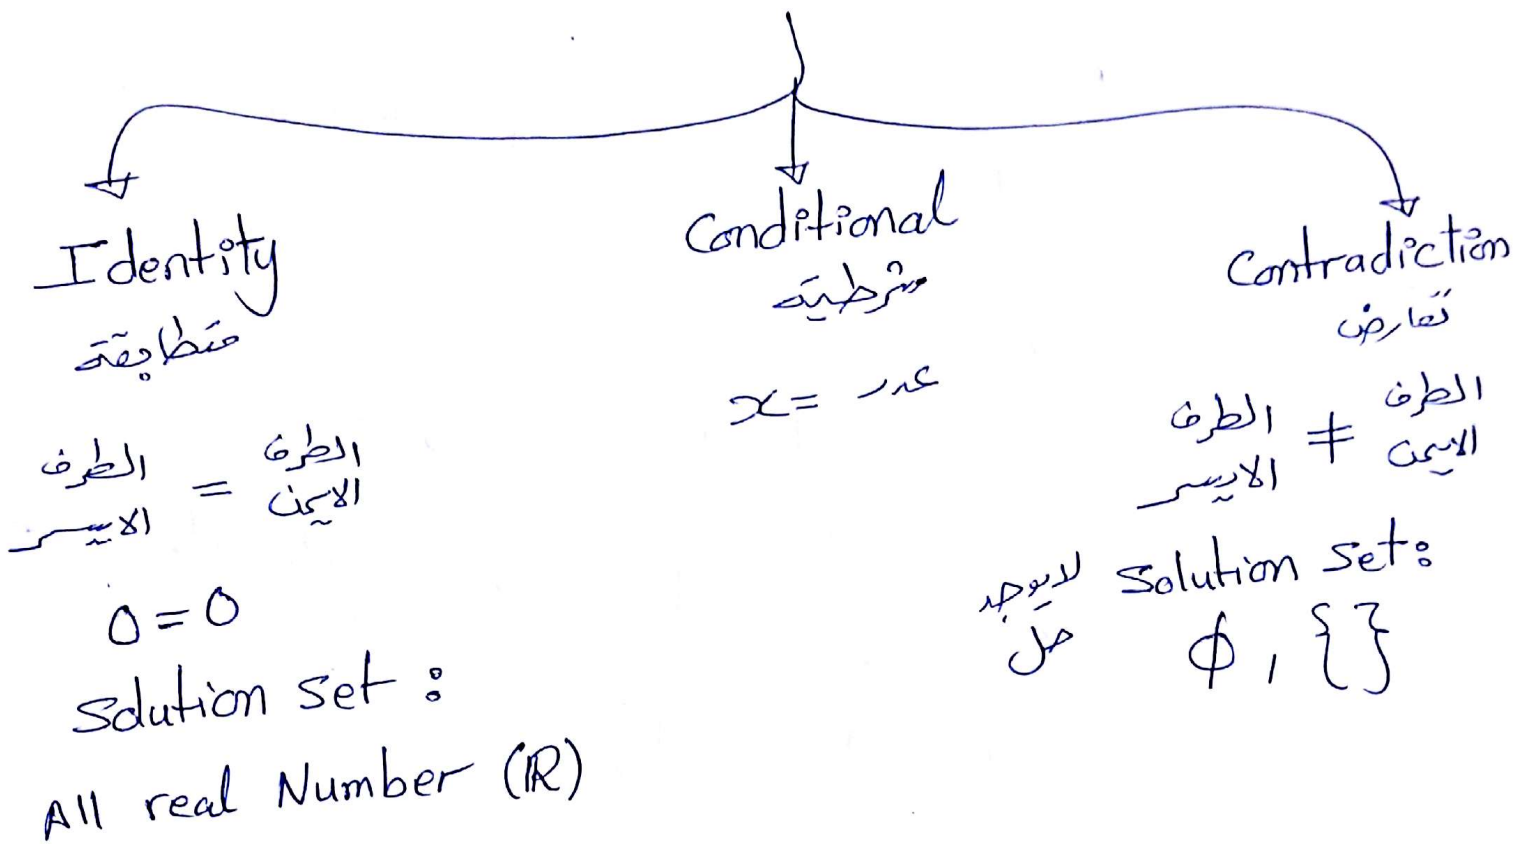 Identity
متطابقة
الطرف الايمن = الطرف الايسر
0 = 0
Solution set :
All real Number (ℝ)
Conditional
شرطية
x = عدد
Contradiction
تعارض
الطرف الايمن ≠ الطرف الايسر
Solution set:
لا يوجد حل
ϕ , { }